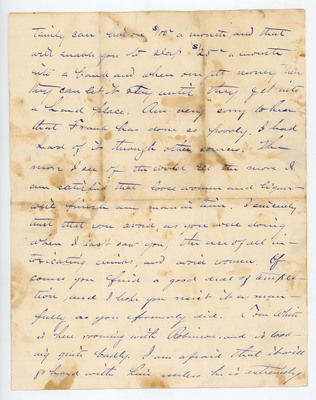 family can live on $12 a month and that
will enable you to keep $25 a month
into a and when
they can let it stay until they get into
a hard place. Am very sorry to hear
that Frank has done so poorly. I had
heard of it through other sources. The
more I see of the world the more I
am satisfied that loose women and liquor
will finish any man in time. I sincerely
trust that you avoid, as you were doing
when I last saw you, the use of all in-
toxicating drinks, and avoid women. Of
course you find a good deal of tempta-
tion, and I hope you resist it as man-
fully as you formerly did. Tom White
is here rooming with Robinson and is look-
ing quite badly. I am afraid that it will
go hard with him unless he is extremely